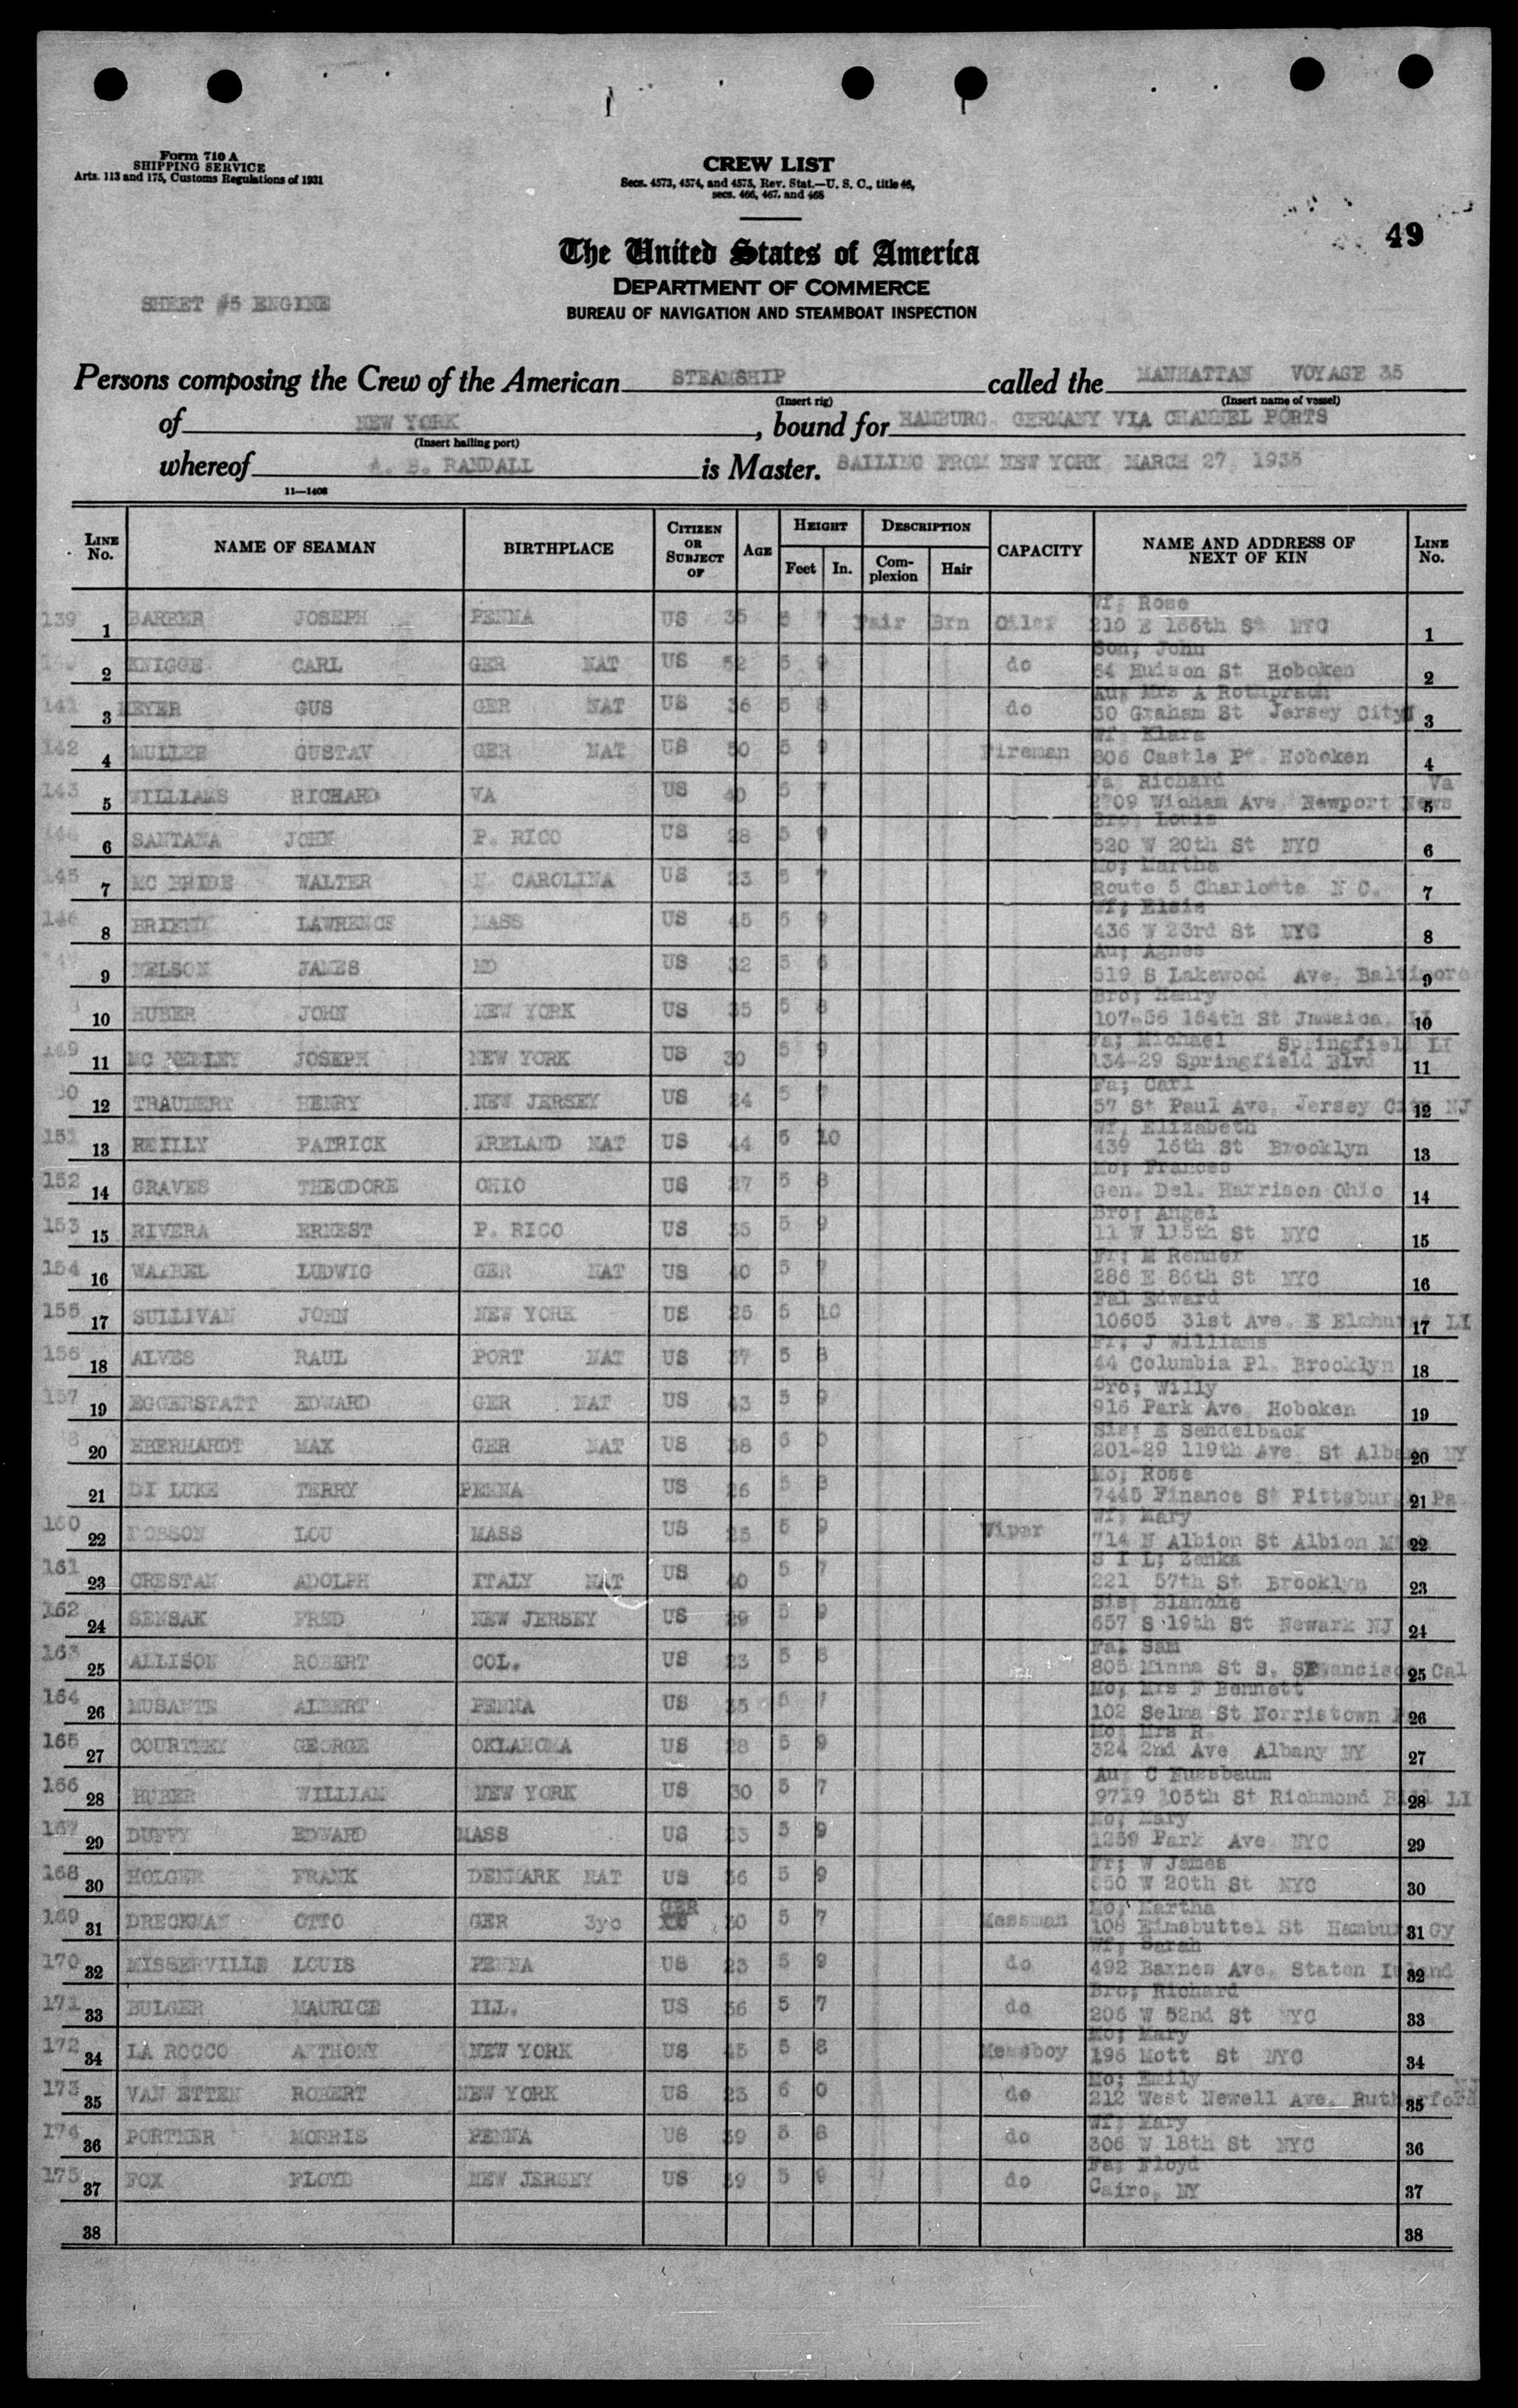 Form 710 A
SHIPPING SERVICE
Arts. 113 and 175, Customs Regulations of 1931
CREW LIST
Secs. 4573, 4574, and 4575, Rev. Stat.—U. S. C., title 46,
secs. 466, 467, and 468
49
The United States of America
DEPARTMENT OF COMMERCE
BUREAU OF NAVIGATION AND STEAMBOAT INSPECTION
SHEET #5 ENGINE
Persons composing the Crew of the American STEAMSHIP called the MANHATTAN VOYAGE 35
(Insert rig) (Insert name of vessel)
of NEW YORK, bound for HAMBURG, GERMANY VIA CHANNEL PORTS
(Insert hailing port)
whereof A. B. RANDALL is Master. SAILING FROM NEW YORK MARCH 27, 1935
11—1408
LINE No. NAME OF SEAMAN BIRTHPLACE CITIZEN OR SUBJECT OF AGE HEIGHT Feet In. DESCRIPTION Complexion Hair CAPACITY NAME AND ADDRESS OF NEXT OF KIN LINE No.
Wf; Rose
139 1 BARBER JOSEPH PENNA US 35 5 7 Fair Brn Oiler 210 E 166th St NYC 1
Son; John
2 KNIGGE CARL GER NAT US 52 5 9 do 64 Hudson St Hoboken 2
Au; Mrs A
141 3 MEYER GUS GER NAT US 36 5 8 do 30 Graham St Jersey City 3
Wf Klara
142 4 MULLER GUSTAV GER NAT US 50 5 9 Fireman 806 Castle Pt. Hoboken 4
Fa Richard Va
143 5 WILLIAMS RICHARD VA US 40 5 7 2709 Wicham Ave. Newport News 5
Bro; Louis
6 SANTANA JOHN P. RICO US 28 5 9 520 W 20th St NYC 6
Mo; Martha
145 7 MC BRIDE WALTER N. CAROLINA US 23 5 7 Route 5 Charlotte N C. 7
Wf; Elsie
146 8 LAWRENCE MASS US 45 5 9 436 W 23rd St NYC 8
Au; Agnes
9 NELSON JAMES MD US 32 5 6 519 S Lakewood Ave. Baltimore 9
Bro; Henry
10 HUBER JOHN NEW YORK US 35 5 8 107-56 164th St Jamaica, LI 10
Fa; Michael Springfield LI
149 11 MC JOSEPH NEW YORK US 30 5 9 134-29 Springfield Blvd 11
Fa; Carl
12 TRAUDERT HENRY NEW JERSEY US 24 5 7 57 St Paul Ave. Jersey City NJ 12
Wf, Elizabeth
151 13 REILLY PATRICK IRELAND NAT US 44 5 10 439 16th St Brooklyn 13
Mo; Frances
152 14 GRAVES THEODORE OHIO US 27 5 8 Gen. Del. Harrison Ohio 14
Bro; Angel
153 15 RIVERA ERNEST P. RICO US 35 5 9 11 W 115th St NYC 15
Fr; M Renner
154 16 LUDWIG GER NAT US 40 5 7 286 E 86th St NYC 16
Fa; Edward
155 17 SULLIVAN JOHN NEW YORK US 25 5 10 10605 31st Ave. E Elmhurst LI 17
Fr; J Williams
156 18 ALVES RAUL PORT NAT US 37 5 8 44 Columbia Pl. Brooklyn 18
Bro; Willy
157 19 EGGERSTATT EDWARD GER NAT US 43 5 9 916 Park Ave Hoboken 19
Sis; E Sendelback
8 20 EBERHARDT MAX GER NAT US 38 6 0 201-29 119th Ave St Albans NY 20
Mo; Rose
21 DI LUKE TERRY PENNA US 26 5 8 7445 Finance St Pittsburgh Pa 21
Wf; Mary
160 22 DOBSON LOU MASS US 25 5 9 Wiper 714 N Albion St Albion 22
S I L; Zenka
161 23 CRESTAN ADOLPH ITALY NAT US 40 5 7 221 57th St Brooklyn 23
Sis; Blanche
162 24 SENSAK FRED NEW JERSEY US 29 5 9 657 S 19th St Newark NJ 24
Fa; Sam
163 25 ALLISON ROBERT COL. US 23 5 8 805 Minna St S. Cal 25
Mo; Mrs F Bennett
164 26 MUSANTE ALBERT PENNA US 35 5 7 102 Selma St Norristown 26
Mo; Mrs R.
165 27 COURTNEY GEORGE OKLAHOMA US 28 5 9 324 2nd Ave Albany NY 27
Au; C Nussbaum
166 28 HUBER WILLIAM NEW YORK US 30 5 7 9719 105th St Richmond Hill LI 28
Mo; Mary
167 29 DUFFY EDWARD MASS US 23 5 9 1269 Park Ave NYC 29
Fr; W James
168 30 HOLGER FRANK DENMARK NAT US 36 5 9 550 W 20th St NYC 30
GER Mo; Martha
169 31 DRECKMAN OTTO GER 3yc 30 5 7 Messman 108 Eimsbuttel St Hamburg Gy 31
Wf; Sarah
170 32 MISSERVILLE LOUIS PENNA US 23 5 9 do 492 Barnes Ave. Staten Island 32
Bro; Richard
171 33 BULGER MAURICE ILL. US 36 5 7 do 206 W 52nd St NYC 33
Mo; Mary
172 34 LA ROCCO ANTHONY NEW YORK US 45 5 8 Messboy 196 Mott St NYC 34
Mo; Emily NJ
173 35 VAN ETTEN ROBERT NEW YORK US 23 6 0 do 212 West Newell Ave. Rutherford 35
Wf; Mary
174 36 PORTNER MORRIS PENNA US 39 5 8 do 306 W 18th St NYC 36
Fa; Floyd
175 37 FOX FLOYD NEW JERSEY US 39 5 9 do Cairo, NY 37
38 38